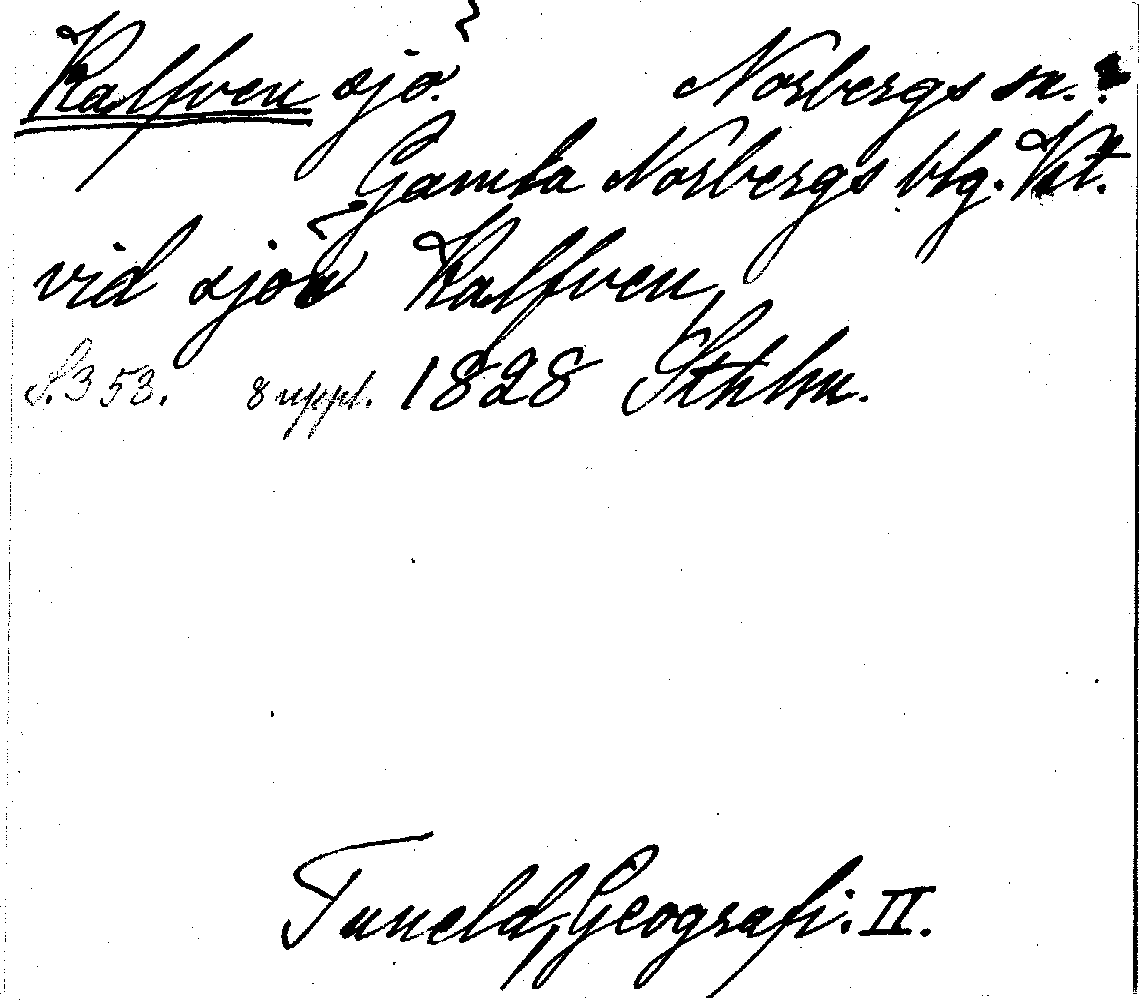 Kalfven sjö. Norbergs sn.
Gamla Norbergs blg. Vst.
vid sjön Kalfven,
S. 353. 8 uppl. 1828 Sthlm.
Tuneld, Geografi. II.